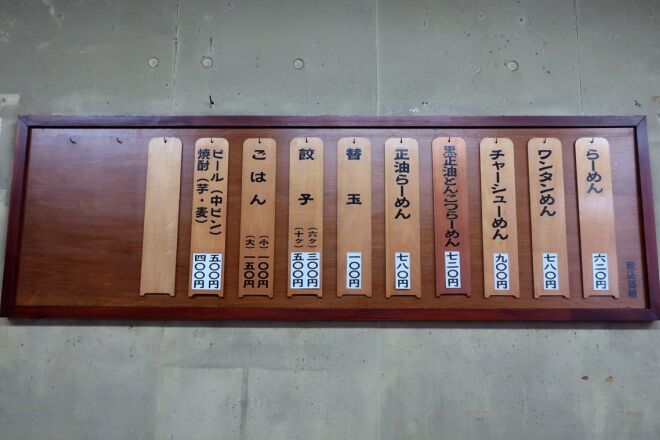 税込価格
らーめん 六二〇円
ワンタンめん 七八〇円
チャーシューめん 九〇〇円
黒正油とんこつらーめん 七三〇円
正油らーめん 七八〇円
替玉 一〇〇円
餃子 (六ヶ) 三〇〇円
(十ヶ) 五〇〇円
ごはん (小) 一〇〇円
(大) 一五〇円
ビール(中ビン) 五〇〇円
焼酎(芋・麦) 四〇〇円